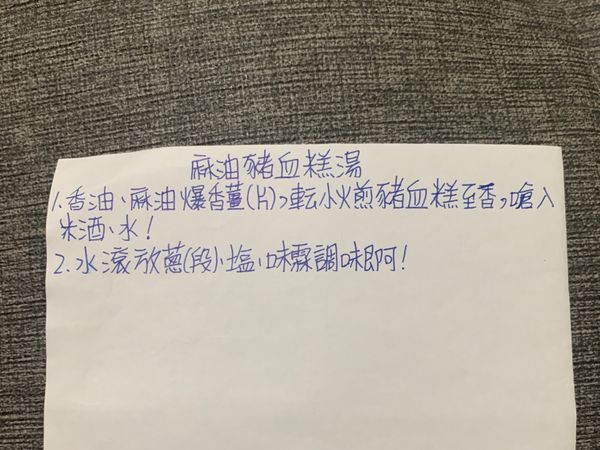 麻油豬血糕湯
1.香油、麻油爆香薑(片)，轉小火煎豬血糕至香，嗆入
米酒、水！
2.水滾放蔥(段)、塩、味霖調味即可！